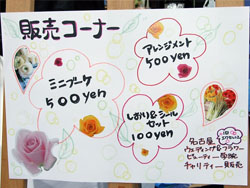 販売コーナー
アレンジメント
500yen
ミニブーケ
500yen
しおり&シール
セット
100yen
名古屋
ウェディング&フラワー
ビューティー学院
チャリティー販売